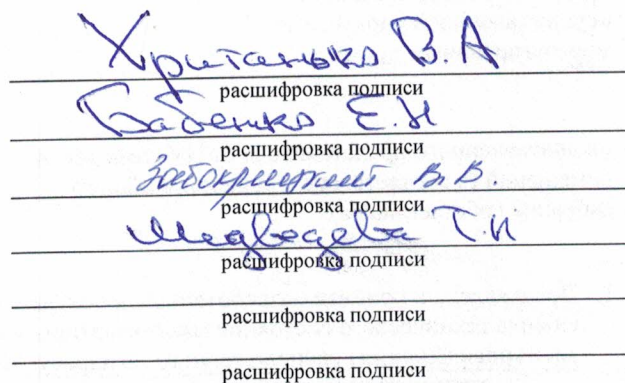 Хританько В.А
расшифровка подписи
Бабенко Е.Н
расшифровка подписи
Забокрицкий В.В.
расшифровка подписи
Медведева Т.И
расшифровка подписи
расшифровка подписи
расшифровка подписи